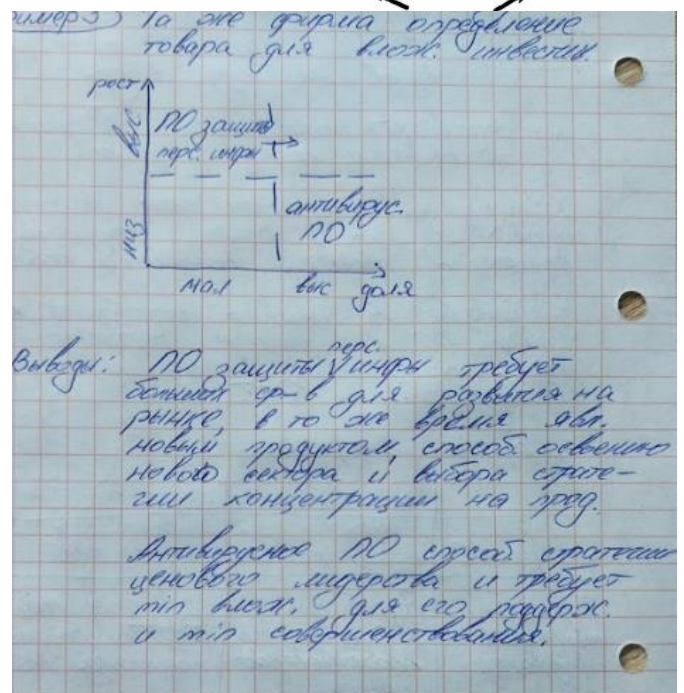 Пример 3) Та же фирма определение
товара для влож. инвестиц.
рост
выс
ПО защиты
перс. инфн
низ
антивирус.
ПО
мал выс доля
Выводы: ПО защиты перс. инфн требует
больших ср-в для развития на
рынке, в то же время явл.
новым продуктом, способ. освоению
нового сектора и выбора страте-
гии концентрации на прод.
Антивирусное ПО способ. стратегии
ценового лидерства и требует
min влож. для его поддерж.
и min совершенствования.